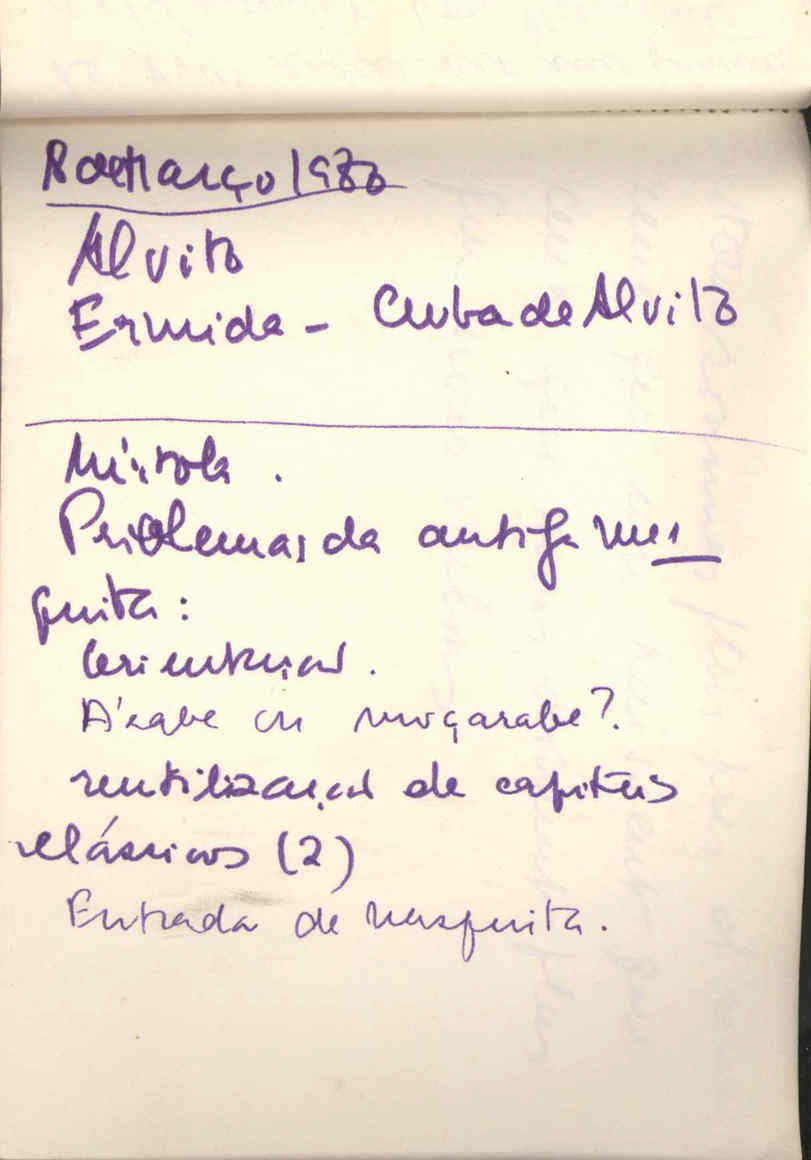 8 de Março 1980
Alvito
Ermida - Cuba de Alvito
Mértola.
Problemas da antiga mes
quita:
Orientação.
Árabe ou moçarabe?
reutilização de capiteis
clássicos (2)
Entrada da mesquita.